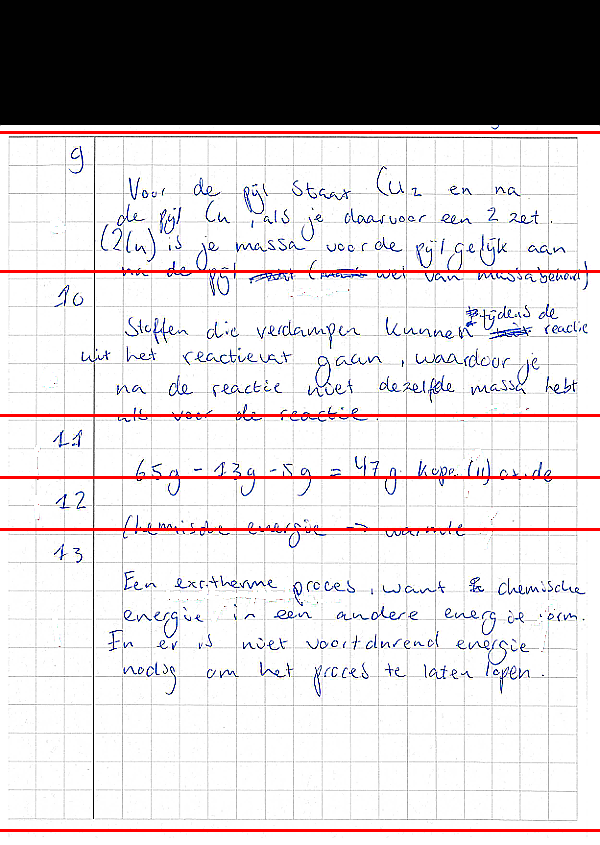 9
Voor de pijl staat Cu2 en na
de pijl Cu, als je daarvoor een 2 zet.
(2Cu) is je massa voor de pijl gelijk aan
na de pijl (wet van massabehoud)
10
Stoffen die verdampen kunnen tijdens de reactie
uit het reactievat gaan, waardoor je
na de reactie niet dezelfde massa hebt
als voor de reactie.
11
65g - 13g - 5g = 47g koper(II)oxide
12
Chemische energie -> warmte
13
Een exotherme proces, want chemische
energie in een andere energie vorm.
En er is niet voortdurend energie
nodig om het proces te laten lopen.